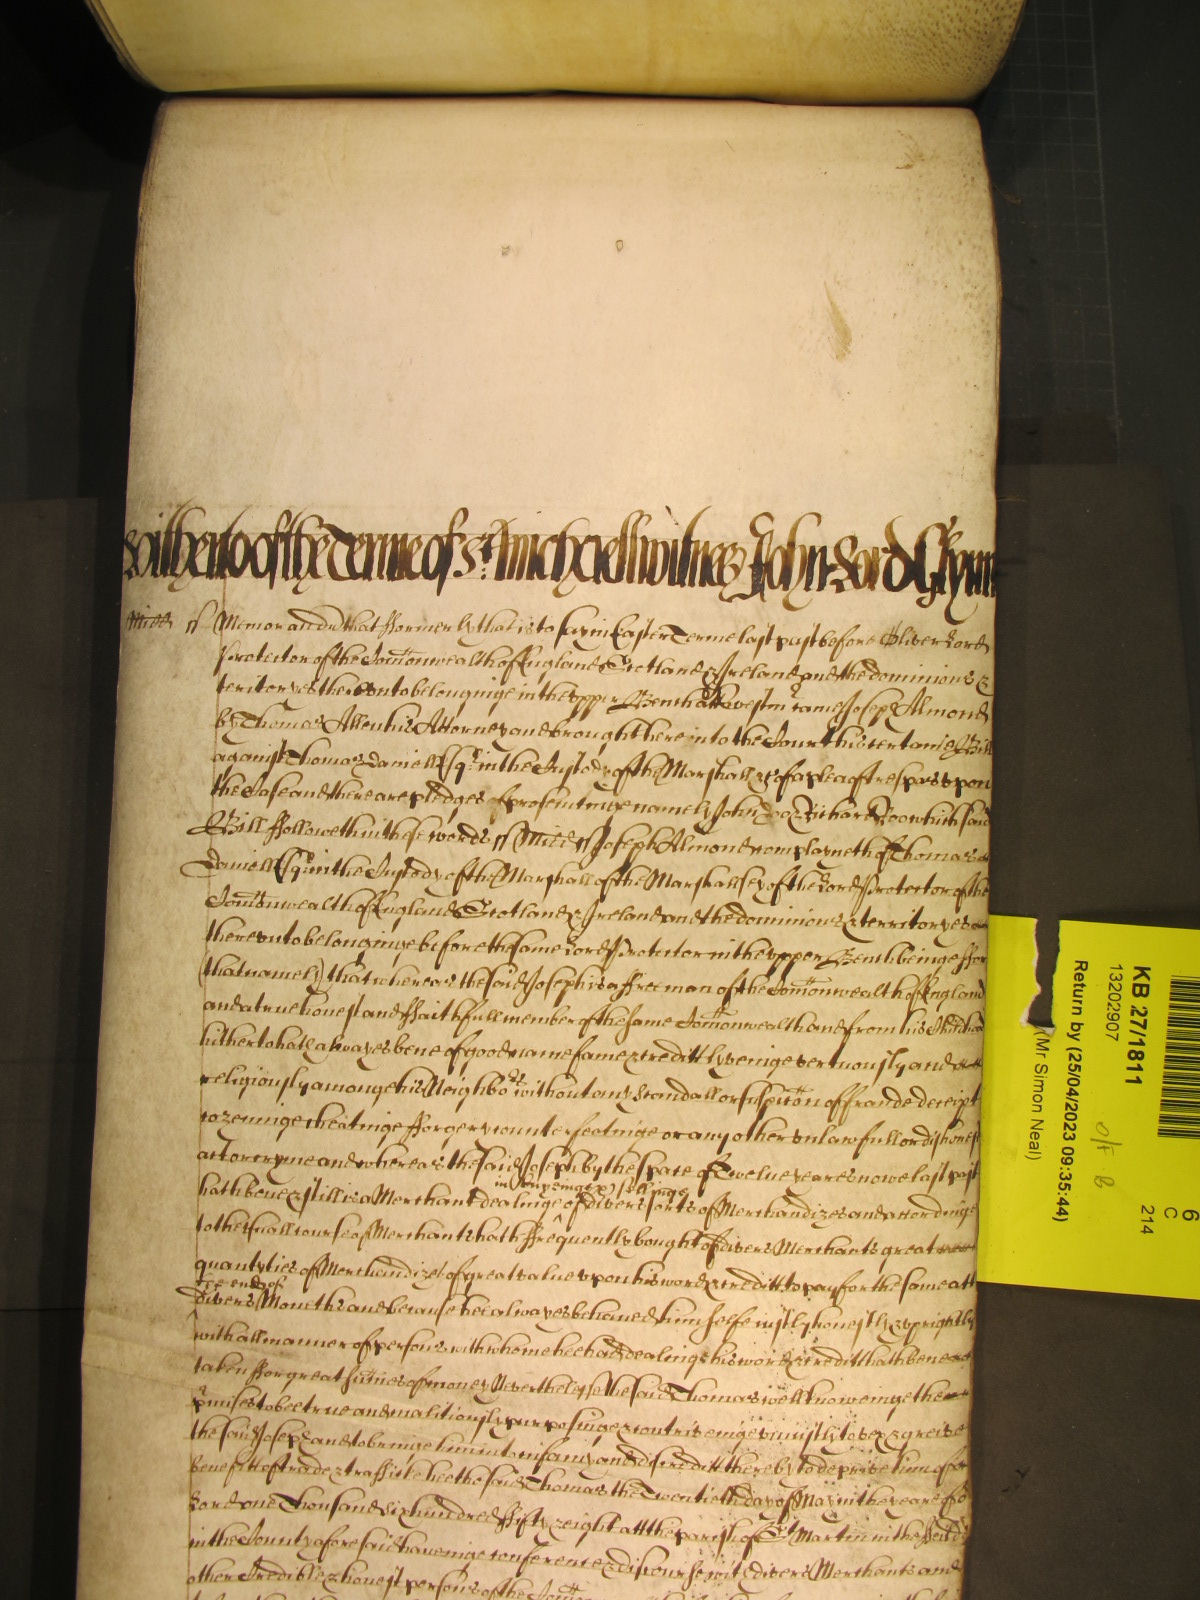 Yitt hereto of the Terme of St. Michaell Witnes John Lord Glynn
Midd ss Memorandu that fformerly that is to say in Easter Terme last past before Oliver Lord
Protector of the Comonwealth of England Scotland & Ireland and the dominions &
teritoryes thereunto belonginge in the upper Bench att Westmr came Joseph Almond
by Thomas Allen his Attorney and brought here into the Court his certaine Bill
against Thomas Daniell Esqr in the Custody of the Marshall &c of a plea of trespas upon
the Case and there are pledges of prosecutinge namely John Doo & Richard Roo which said
Bill ffolloweth in these words ss Midd ss Joseph Almond complayneth of Thomas
Daniell Esqr in the Custody of the Marshall of the Marshallsey of the Lord Protector of the
Comonwealth of England Scotland & Ireland and the dominions & territoryes
thereunto belonginge before the same Lord Protector in the upper Bench beinge ffor
(that namely) that whereas the said Joseph is a ffree man of the Comonwealth of England
and a true honest and ffaithfull member of the same Comonwealth and from his
hitherto hath alwayes bene of good name fame & creditt lyveinge vertuously and
religiously amonge his Neighbors without any scandall or suspicon of fraude deceipt
cozeninge cheatinge fforgery counterfeatinge or any other unlawfull or dishonest
act or cryme and whereas the said Joseph by the space of Twelve yeares nowe last past
in buyinge & sellinge
hath bene & still is a Merchant dealinge of divers sorts of Merchandizes and accordinge
to the usuall course of Merchants hath ffrequently bought of divers Merchants great
quantyties of Merchandizes of great value upon his word & creditt to pay for the same att
the end of
divers Months and because hee alwayes behaved himselfe justly honestly & uprightly
with all manner of persons with whome hee had dealings his word & creditt hath bene
taken ffor great sumes of money Neverthelesse the said Thomas well knoweinge the
pmises to bee true and malitiously purposinge & contriveinge unjustly to vex & greive
the said Joseph and to bringe him into infamy and discreditt thereby to deprive him of
benefitt of trade & trafficke hee the said Thomas the Twentieth day of May in the yeare of
Lord one Thousand six hundred ffifty & eight att the parish of St Martin in the ffeilds
in the County aforesaid haveinge conference & discourse with divers Merchants and
other Credible & honest persons of the
KB 27/1811
13202907
Return by (25/04/2023 09:35:44)
(Mr Simon Neal)
O/S B
6
C
214